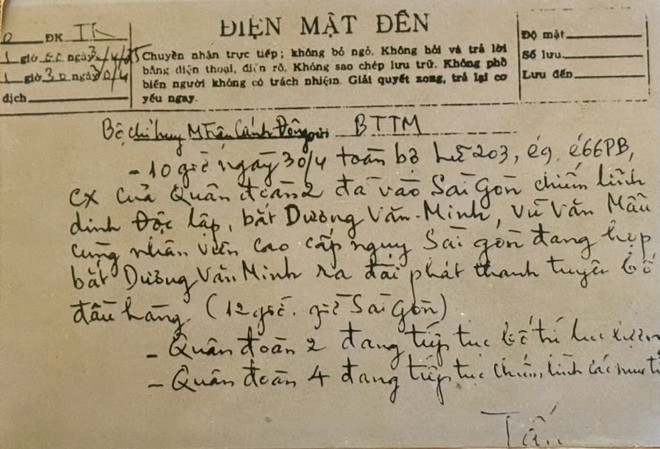 ĐIỆN MẬT ĐẾN
ĐK TK
1 giờ ngày 30/4/75
1 giờ 30 30/4
dịch
Chuyển nhận trực tiếp; không bỏ ngỏ. Không hỏi và trả lời
bằng điện thoại, điện rõ. Không sao chép lưu trữ. Không phổ
biến người không có trách nhiệm. Giải quyết xong, trả lại cơ
yếu ngay.
Độ mật
Số lưu
Lưu đến
Bộ chỉ huy M Trận Cánh Đông gửi BTTM
- 10 giờ ngày 30/4 toàn bộ Lữ 203, e9. e66PB,
CX của Quân đoàn 2 đã vào Sài Gòn chiếm lĩnh
dinh Độc lập, bắt Dương Văn-Minh, Vũ Văn Mẫu
cùng nhân viên cao cấp ngụy Sài gòn đang họp
bắt Dương Văn Minh ra đài phát thanh tuyên bố
đầu hàng (12 giờ. giờ Sài Gòn)
- Quân đoàn 2 đang tiếp tục bố trí lực lượng
- Quân đoàn 4 đang tiếp tục chiếm lĩnh các mục
Tấn